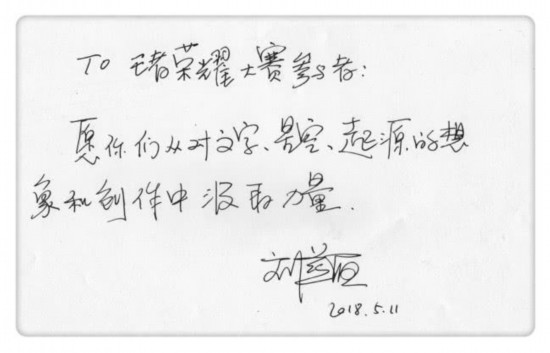 To 王者荣耀大赛参与者：
愿你们从对文字、星空、起源的想
象和创作中汲取力量.
刘慈欣
2018.5.11